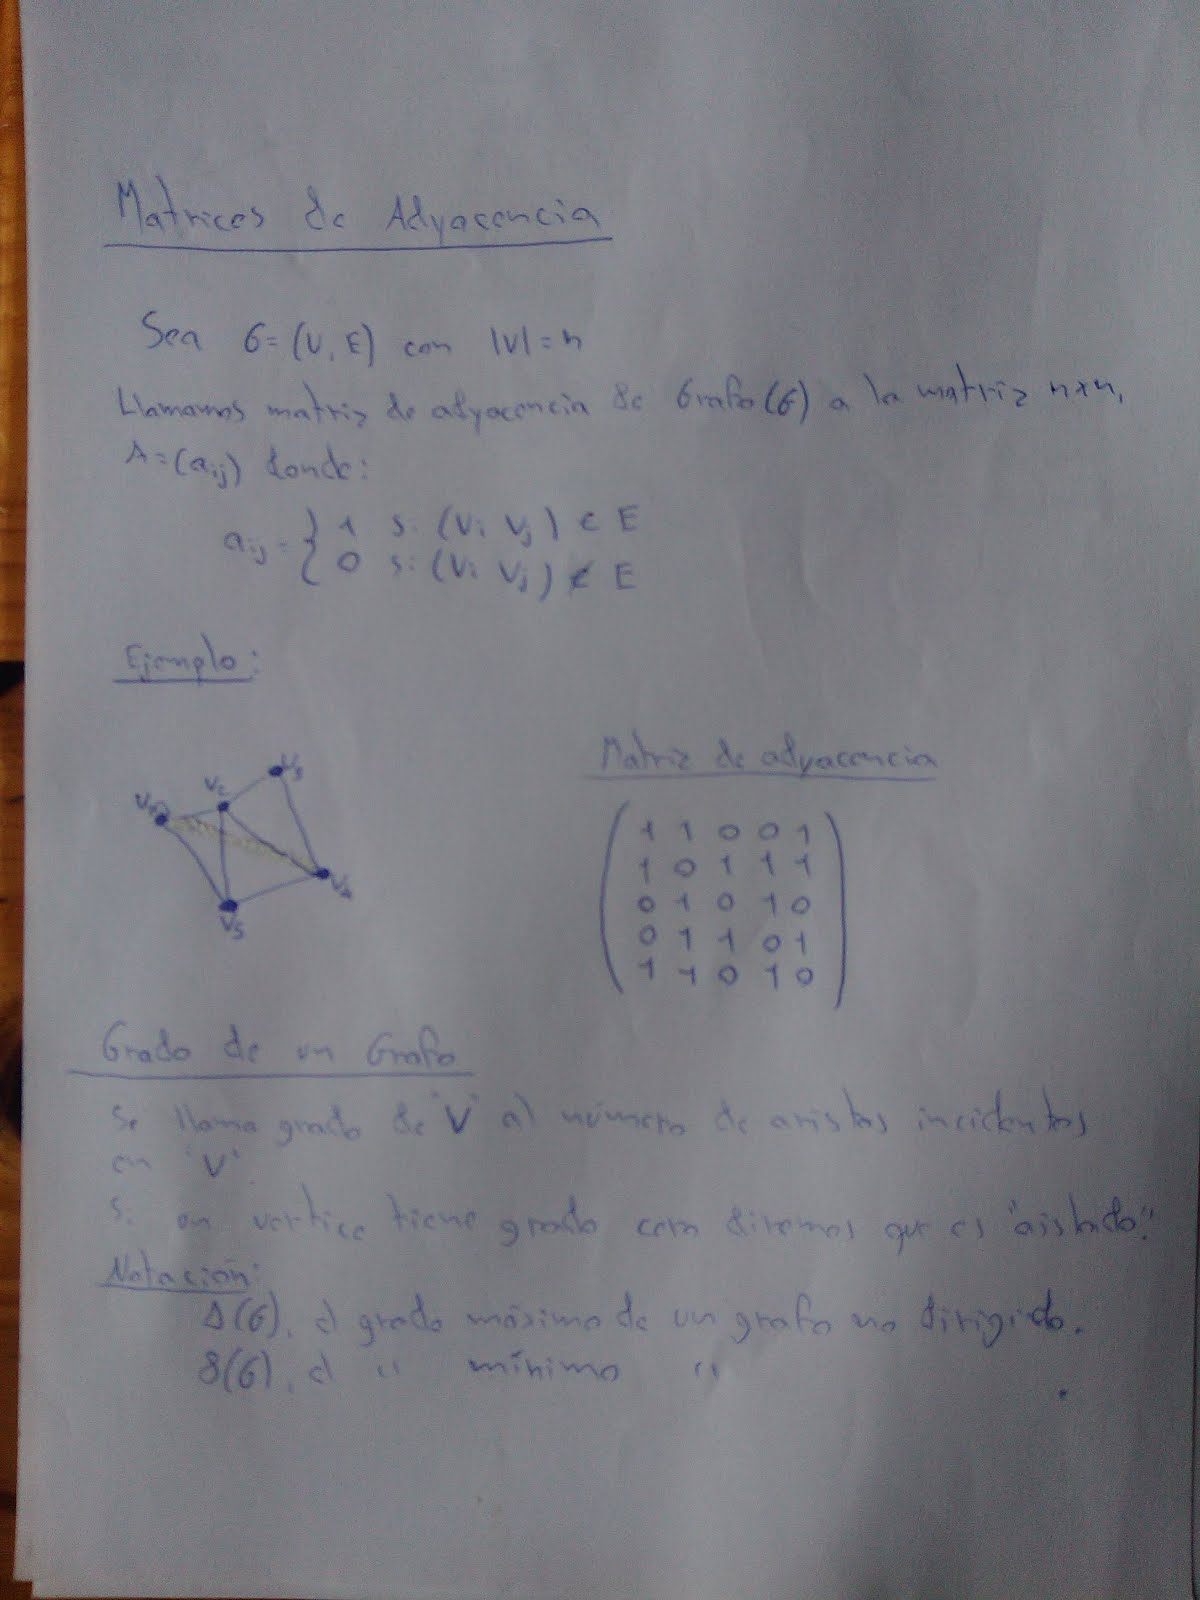 Matrices de Adyacencia
Sea G=(V,E) con |V|=n
Llamamos matriz de adyacencia de Grafo(G) a la matriz nxn,
A=(aij) donde:
aij = { 1 si (Vi Vj) ∈ E
0 si (Vi Vj) ∉ E
Ejemplo:
V1 V2 V3
V4
V5
Matriz de adyacencia
1 1 0 0 1
1 0 1 1 1
0 1 0 1 0
0 1 1 0 1
1 1 0 1 0
Grado de un Grafo
Se llama grado de "V" al número de aristas incidentes
en "V"
Si un vertice tiene grado cero diremos que es "aislado".
Notación:
Δ(G), el grado máximo de un grafo no dirigido.
δ(G), el " mínimo "